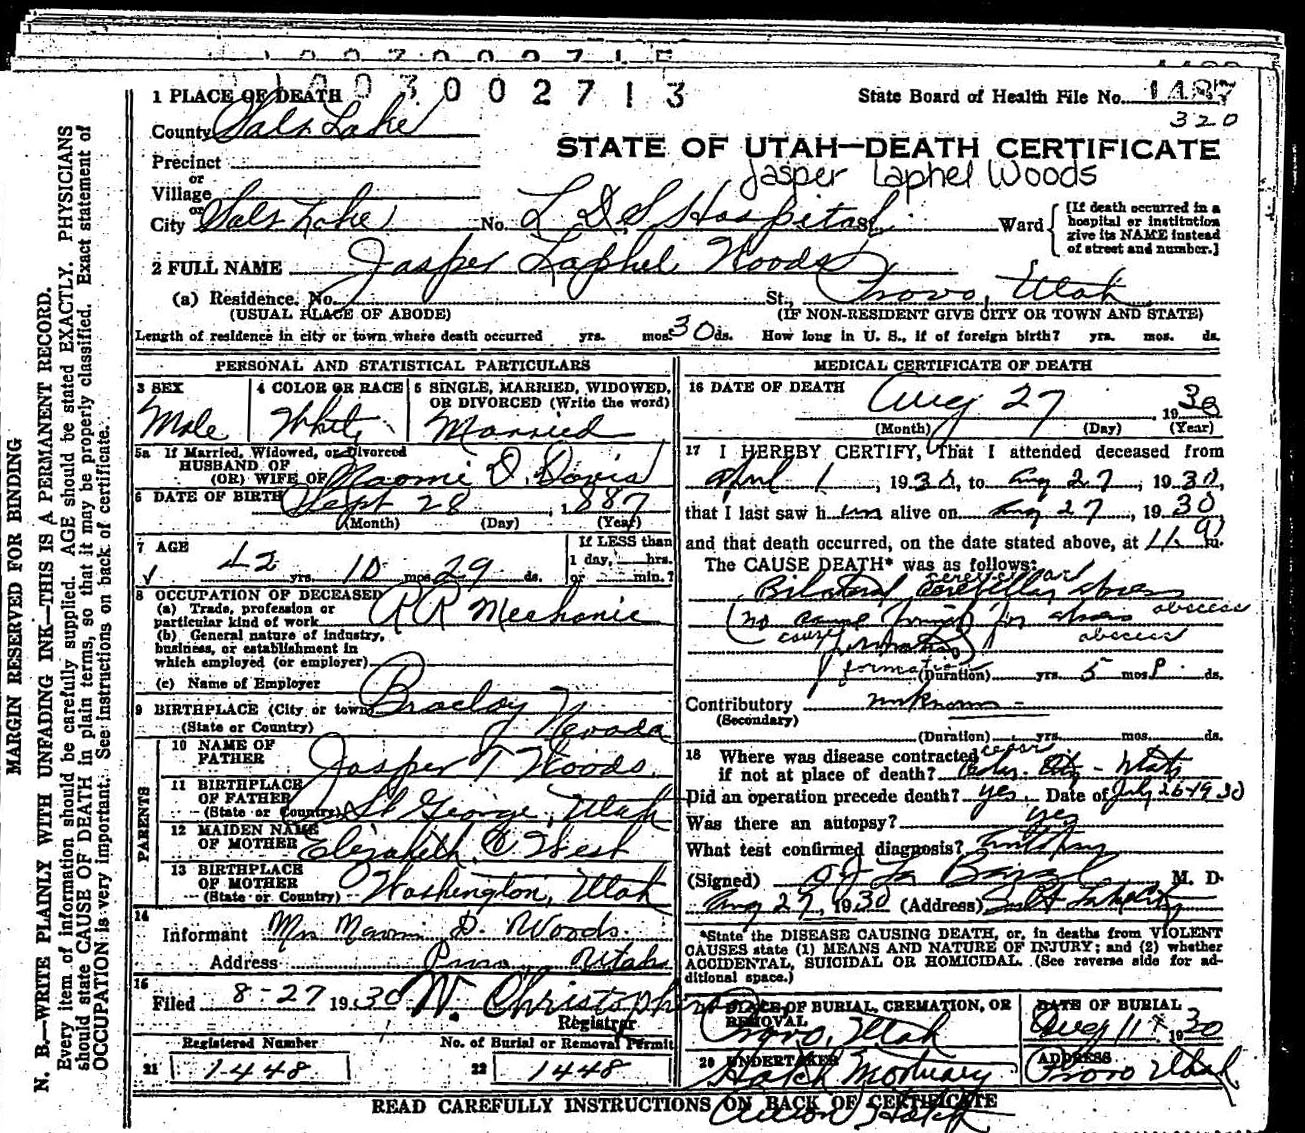 1003002713
1 PLACE OF DEATH
State Board of Health File No. 1487
320
County Salt Lake
STATE OF UTAH—DEATH CERTIFICATE
Precinct
or
Jasper Laphel Woods
Village
or
City Salt Lake No. L D S Hospital St. Ward
[If death occurred in a
hospital or institution
give its NAME instead
of street and number.]
2 FULL NAME Jasper Laphel Woods
(a) Residence. No. St., Provo, Utah
(USUAL PLACE OF ABODE) (IF NON-RESIDENT GIVE CITY OR TOWN AND STATE)
Length of residence in city or town where death occurred yrs. mos. 30 ds. How long in U. S., if of foreign birth? yrs. mos. ds.
PERSONAL AND STATISTICAL PARTICULARS
3 SEX
Male
4 COLOR OR RACE
White
5 SINGLE, MARRIED, WIDOWED,
OR DIVORCED (Write the word)
Married
5a If Married, Widowed, or Divorced
HUSBAND OF
(OR) WIFE OF Naomie D. Davis
6 DATE OF BIRTH Sept 28, 1887
(Month) (Day) (Year)
7 AGE
42 yrs. 10 mos. 29 ds.
If LESS than
1 day, hrs.
or min.?
8 OCCUPATION OF DECEASED
(a) Trade, profession or
particular kind of work R R Mechanic
(b) General nature of industry,
business, or establishment in
which employed (or employer)
(c) Name of Employer
9 BIRTHPLACE (City or town)
(State or Country) Nevada
PARENTS
10 NAME OF
FATHER Jasper T Woods
11 BIRTHPLACE
OF FATHER
(State or Country) St George, Utah
12 MAIDEN NAME
OF MOTHER Elizabeth C West
13 BIRTHPLACE
OF MOTHER
(State or Country) Washington, Utah
14
Informant Mrs D. Woods
Address Provo Utah
15
Filed 8-27 1930 W. Christopherson
Registrar
Registered Number
21 1448
No. of Burial or Removal Permit
22 1448
MEDICAL CERTIFICATE OF DEATH
16 DATE OF DEATH
Aug 27, 1930
(Month) (Day) (Year)
17 I HEREBY CERTIFY, That I attended deceased from
April 1, 1930, to Aug 27, 1930,
that I last saw him alive on Aug 27, 1930
and that death occurred, on the date stated above, at m.
The CAUSE DEATH* was as follows:
Bilateral cerebellar abscess
(no cause found for abscess
cause abscess
formation
(Duration) yrs. 5 mos. ds.
Contributory unknown
(Secondary)
(Duration) yrs. mos. ds.
18 Where was disease contracted
if not at place of death? Cedar City - Utah
Did an operation precede death? yes Date of July 26-1930
Was there an autopsy? yes
What test confirmed diagnosis? autopsy
(Signed) M. D.
Aug 27, 1930 (Address) Salt Lake City
*State the DISEASE CAUSING DEATH, or, in deaths from VIOLENT
CAUSES state (1) MEANS AND NATURE OF INJURY; and (2) whether
ACCIDENTAL, SUICIDAL OR HOMICIDAL. (See reverse side for ad-
ditional space.)
PLACE OF BURIAL, CREMATION, OR
REMOVAL
Provo, Utah
DATE OF BURIAL
Aug 1930
20 UNDERTAKER
Hatch Mortuary
ADDRESS
Provo Utah
READ CAREFULLY INSTRUCTIONS ON BACK OF CERTIFICATE
Hatch
MARGIN RESERVED FOR BINDING
N. B.—WRITE PLAINLY WITH UNFADING INK—THIS IS A PERMANENT RECORD.
Every item of information should be carefully supplied. AGE should be stated EXACTLY. PHYSICIANS
should state CAUSE OF DEATH in plain terms, so that it may be properly classified. Exact statement of
OCCUPATION is very important. See instructions on back of certificate.